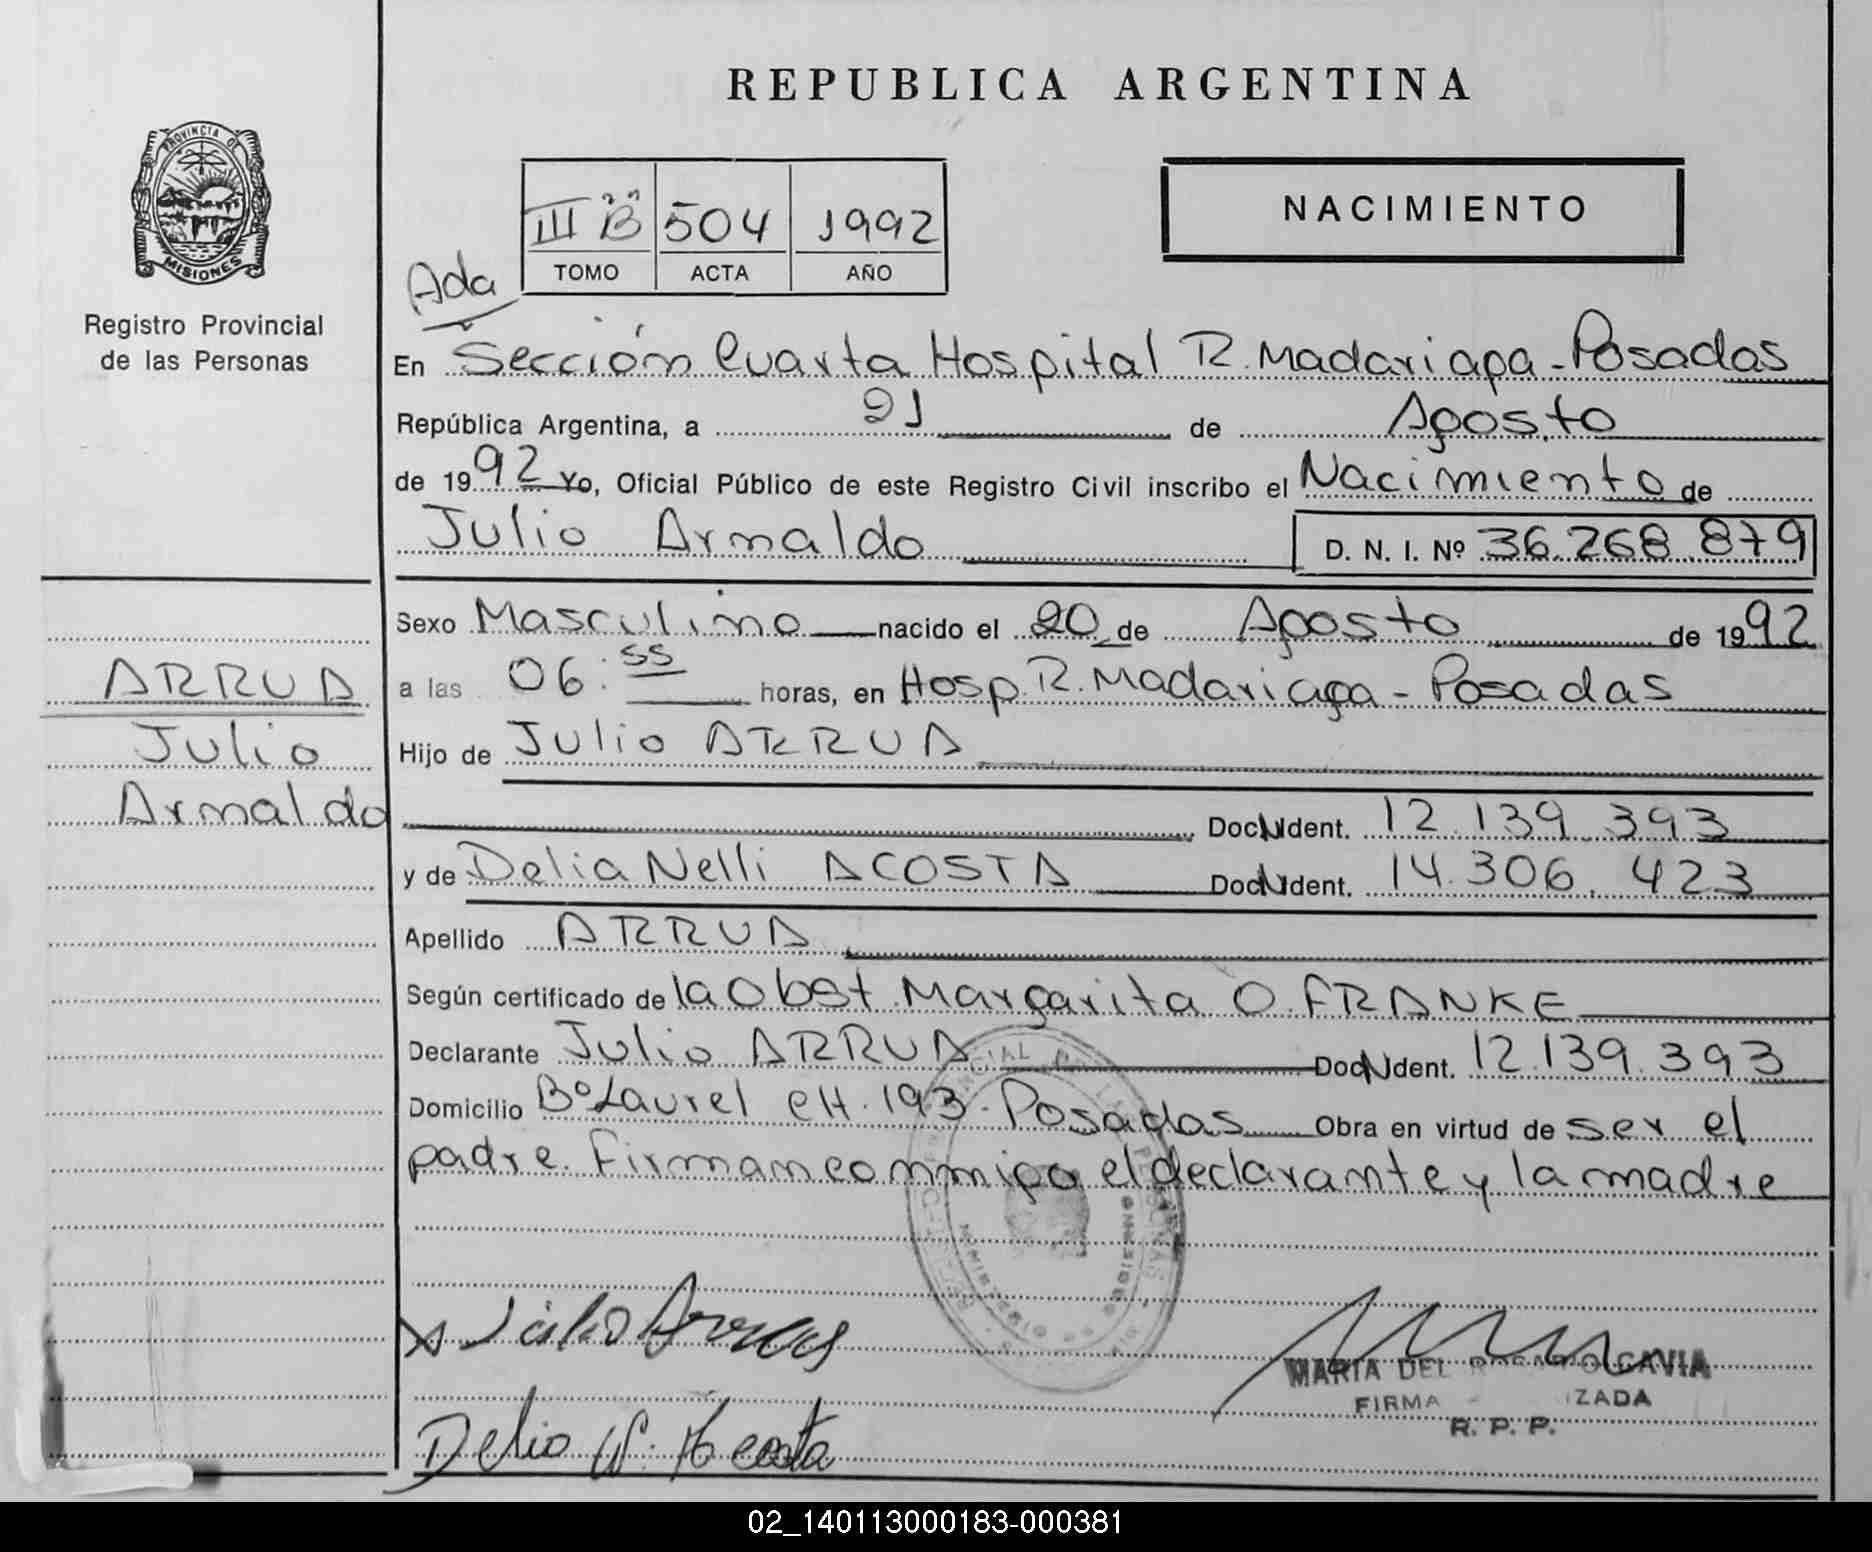 REPUBLICA ARGENTINA
PROVINCIA DE
MISIONES
Registro Provincial
de las Personas
NACIMIENTO
III B 504 1992
TOMO ACTA AÑO
Ada
En Sección Cuarta Hospital R. Madariaga - Posadas
República Argentina, a 21 de Agosto
de 1992 Yo, Oficial Público de este Registro Civil inscribo el Nacimiento de
Julio Arnaldo D. N. I. Nº 36.268.879
Sexo Masculino nacido el 20 de Agosto de 1992
ARRUA
Julio
Arnaldo
a las 06:55 horas, en Hosp. R. Madariaga - Posadas
Hijo de Julio ARRUA
Doc. Ident. 12.139.393
y de Delia Nelli ACOSTA Doc. Ident. 14.306.423
Apellido ARRUA
Según certificado de la Obst. Margarita O. FRANKE
Declarante Julio ARRUA Doc. Ident. 12.139.393
Domicilio Bº Laurel CH. 193 - Posadas Obra en virtud de ser el
padre. Firman conmigo el declarante y la madre
x Julio Arrua
MARIA DEL ROSARIO GAVIA
FIRMA IZADA
R. P. P.
Delia N. Acosta
02_140113000183-000381